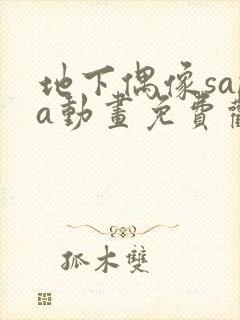 地下偶像sa
a動畫免費
孤木雙